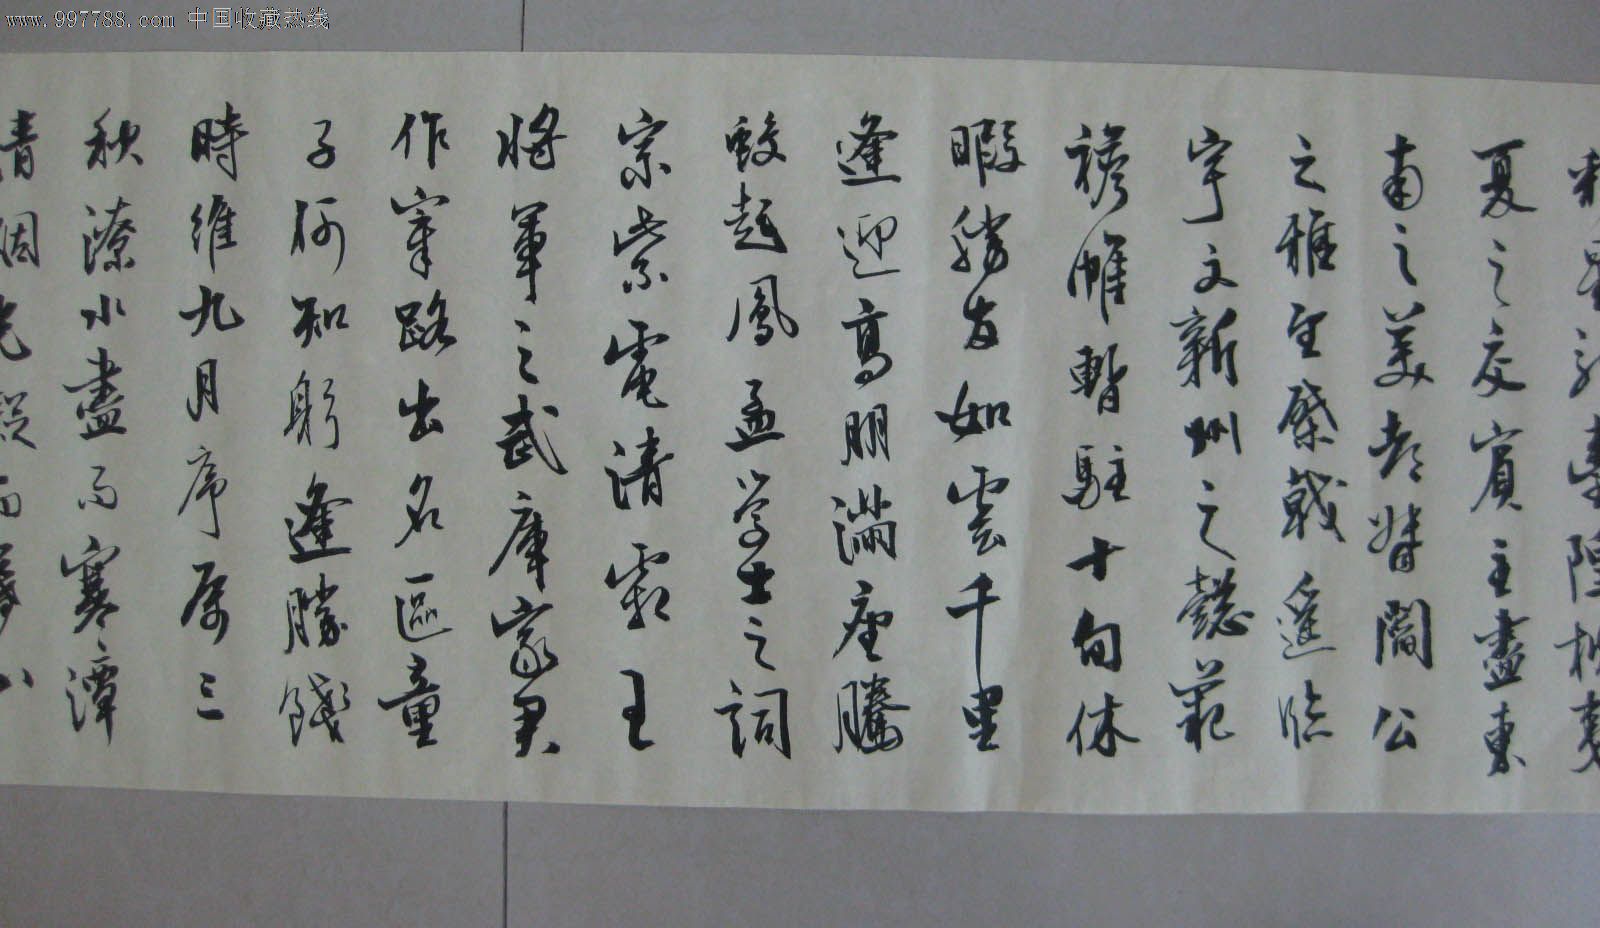 www.997788.com 中国收藏热线
星馳臺隍枕夷
夏之交賓主盡東
南之美都督閻公
之雅望棨戟遙臨
宇文新州之懿範
襜帷暫駐十旬休
暇勝友如雲千里
逢迎高朋滿座騰
蛟起鳳孟学士之詞
宗紫電清霜王
将軍之武庫家君
作宰路出名區童
子何知躬逢勝餞
時維九月序属三
秋潦水盡而寒潭
清烟光凝而暮山